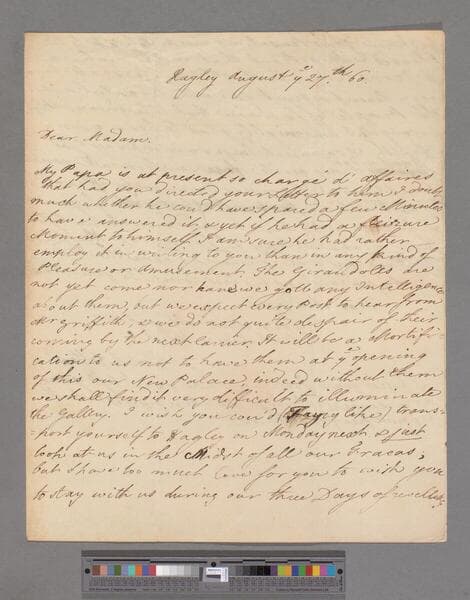 Hagley August yᵉ 27th 60.
Dear Madam.
My Papa is at present so chargé d'affaires
that had you directed your Letter to him I doubt
much whether he could have spared a few Minutes
to have answered it, & yet if he had a leizure
Moment to himself I am sure he had rather
employ it in writing to you than in any kind of
Pleasure or Amusement. The Girandoles are
not yet come nor have we got any Intelligence
about them, but we expect every Post to hear from
Mr Griffith, & we do not quite despair of their
coming by the next Carrier. It will be a Mortifi-
cation to us not to have them at yᵉ opening
of this our New Palace, indeed without them
we shall find it very difficult to illuminate
the Gallery. I wish you could (Fairy like) trans-
=port yourself to Hagley on Monday next & just
look at us in the Midst of all our Fracas,
but I have too much love for you to wish you
to stay with us during our three Days of